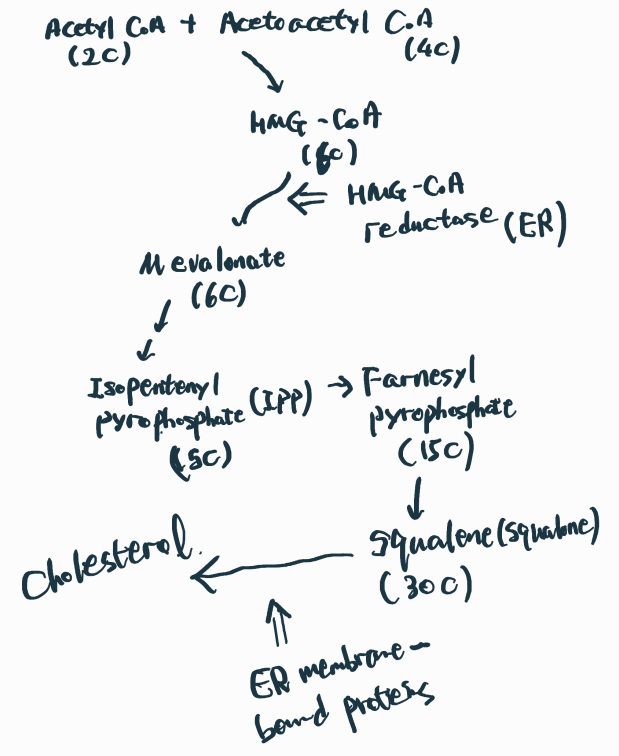 Acetyl CoA + Acetoacetyl CoA
(2C) (4C)
HMG-CoA
(6C)
HMG-CoA
reductase (ER)
Mevalonate
(6C)
Isopentenyl
pyrophosphate (IPP) → Farnesyl
pyrophosphate
(5C) (15C)
Squalene (squalene)
(30C)
Cholesterol.
ER membrane-
bound proteins